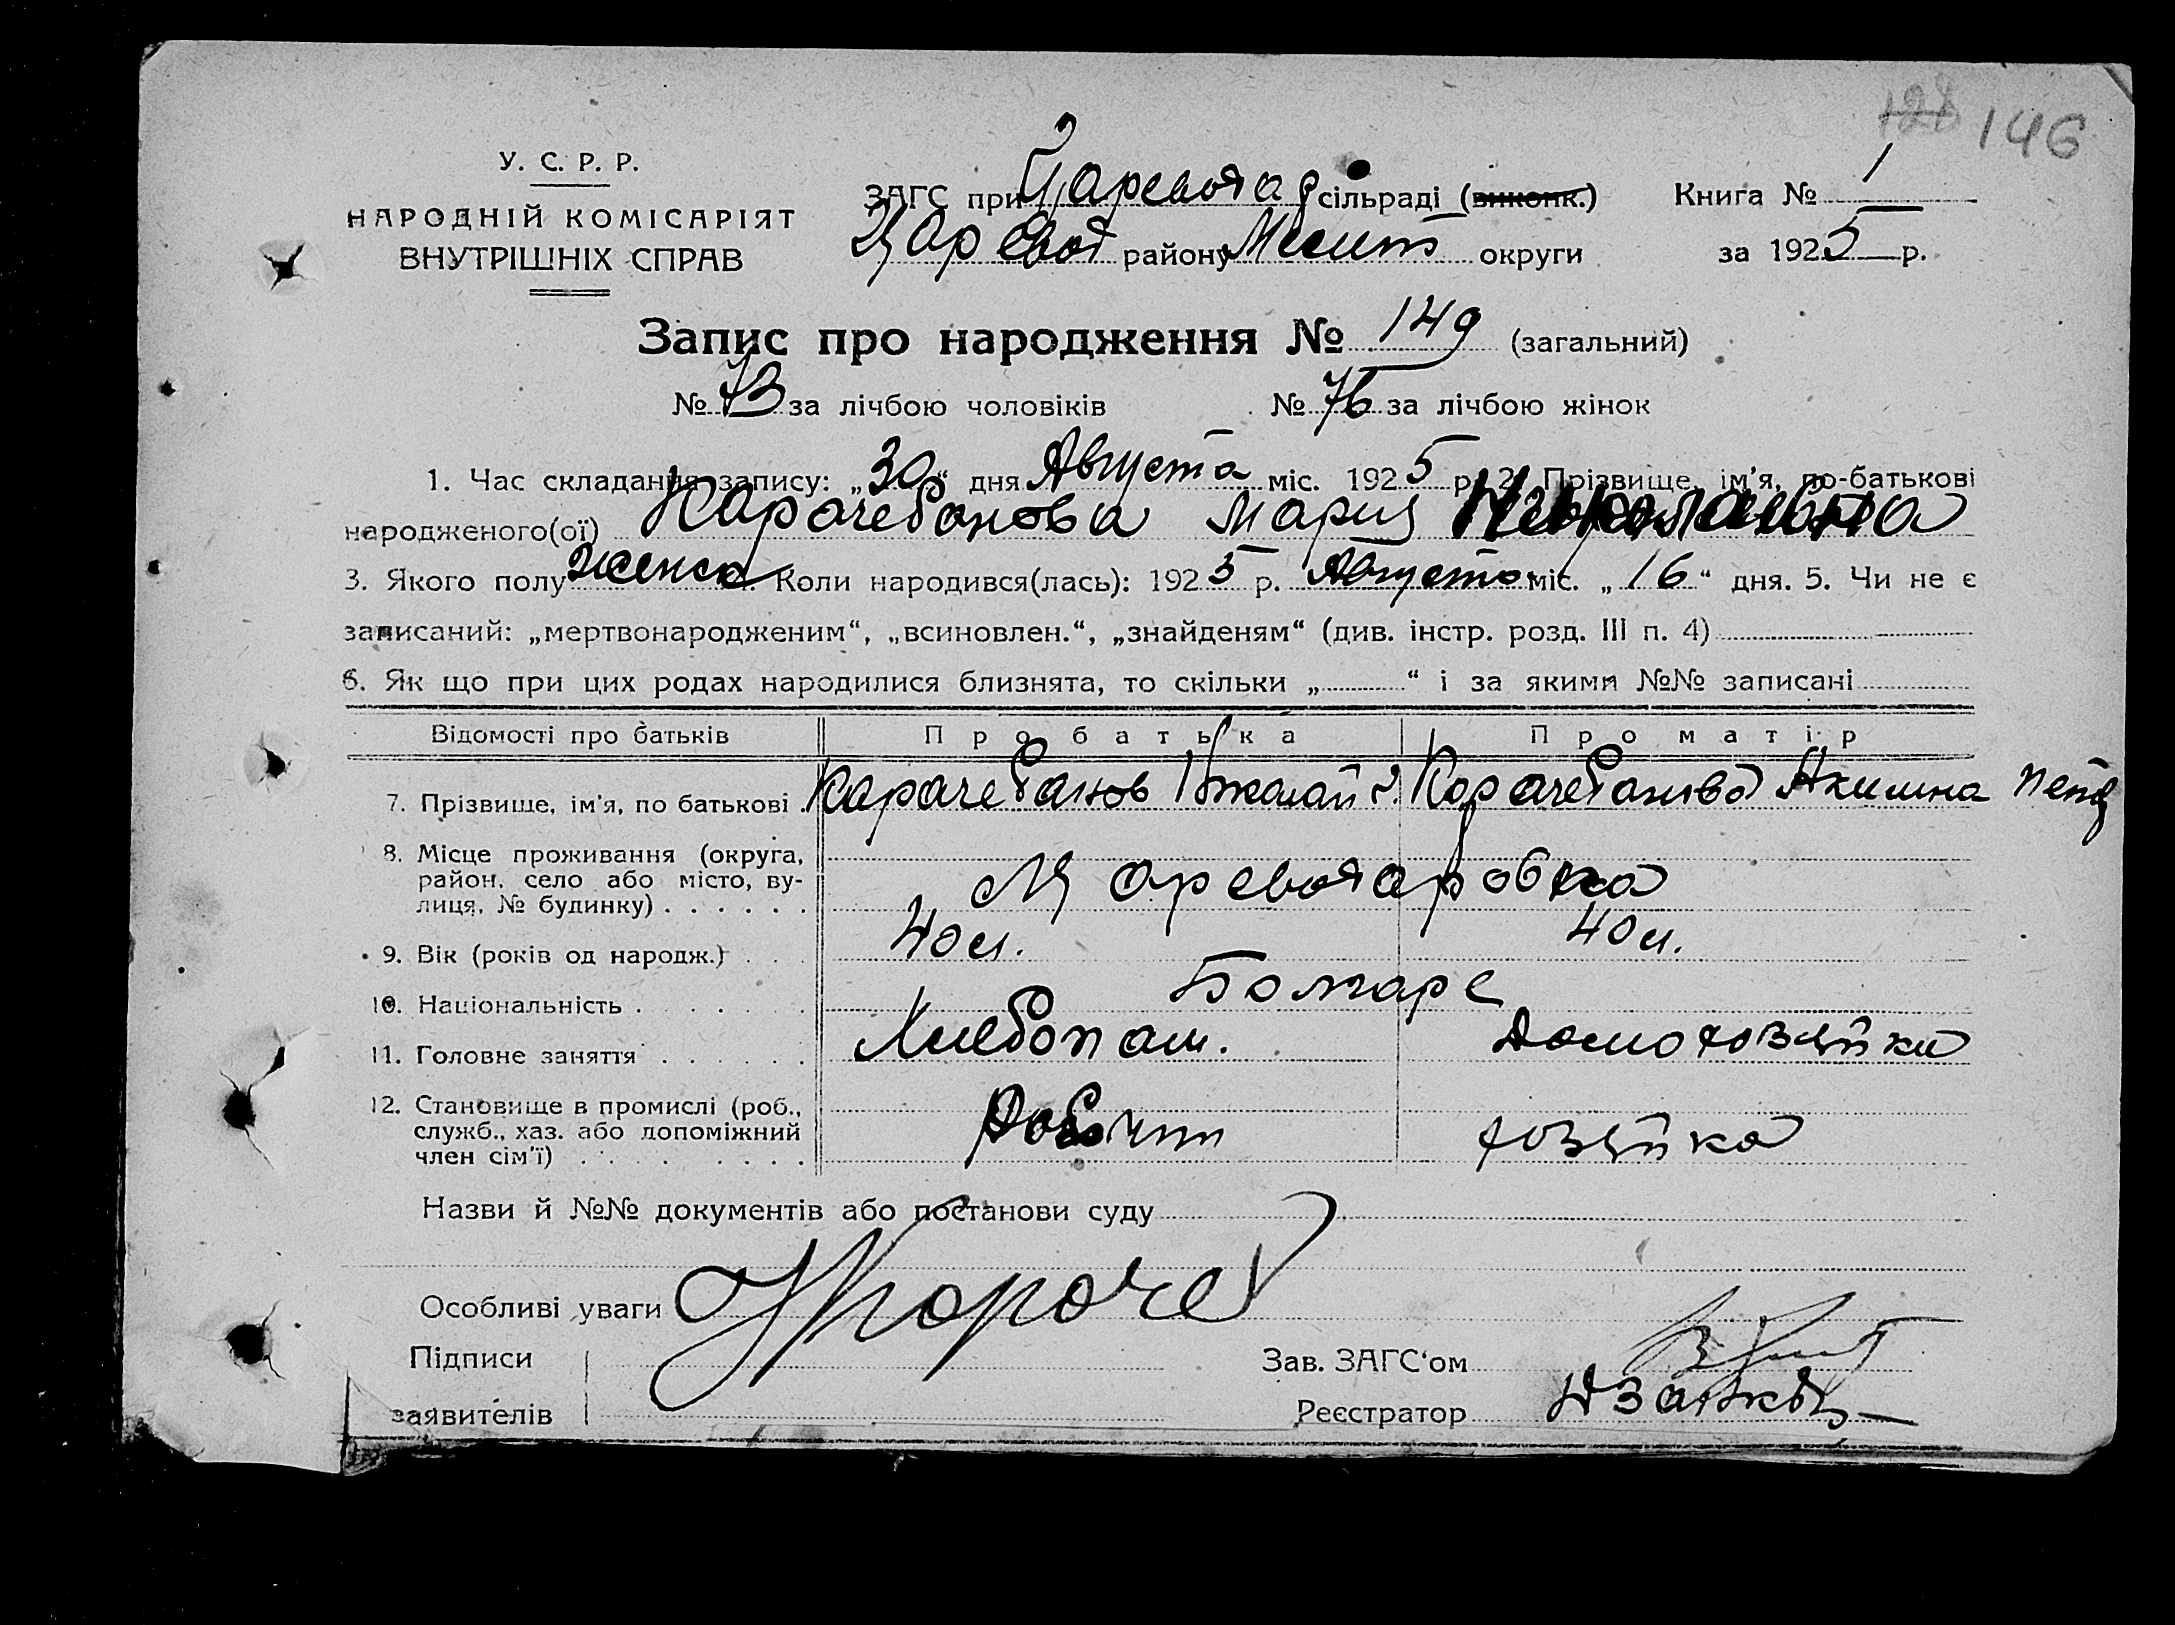 128 146
У. С. Р. Р.
НАРОДНІЙ КОМІСАРІЯТ
ВНУТРІШНІХ СПРАВ
ЗАГС при Царевод сільраді (виконк.) Книга № 1
Царевод району Мелит округи за 1925 р.
Запис про народження № 149 (загальний)
№ 73 за лічбою чоловіків № 76 за лічбою жінок
1. Час складання запису: „30“ дня Августа міс. 1925 р. 2. Прізвище, ім'я, по-батькові
народженого(ої) Карачебанова Мария
3. Якого полу женск. Коли народився(лась): 1925 р. Августа міс. „16“ дня. 5. Чи не є
записаний: „мертвонародженим“, „всиновлен.“, „знайденям“ (див. інстр. розд. III п. 4)
6. Як що при цих родах народилися близнята, то скільки „ “ і за якими №№ записані
Відомості про батьків Про батька Про матір
7. Прізвище, ім'я, по батькові . Карачебанов Николай Карачебанова Акилина Петр
8. Місце проживання (округа,
район, село або місто, ву-
лиця, № будинку) . . . . . .
Цареводаровка
9. Вік (років од народж.) . . . 40 л. 40 л.
10. Національність . . . . . . Болгаре
11. Головне заняття . . . . . Хлебопаш. Домохозяйки
12. Становище в промислі (роб.,
служб., хаз. або допоміжний
член сім'ї) . . . . . . . .
хозяйка
Назви й №№ документів або постанови суду
Особливі уваги
Підписи
заявителів
Зав. ЗАГС'ом
Реєстратор